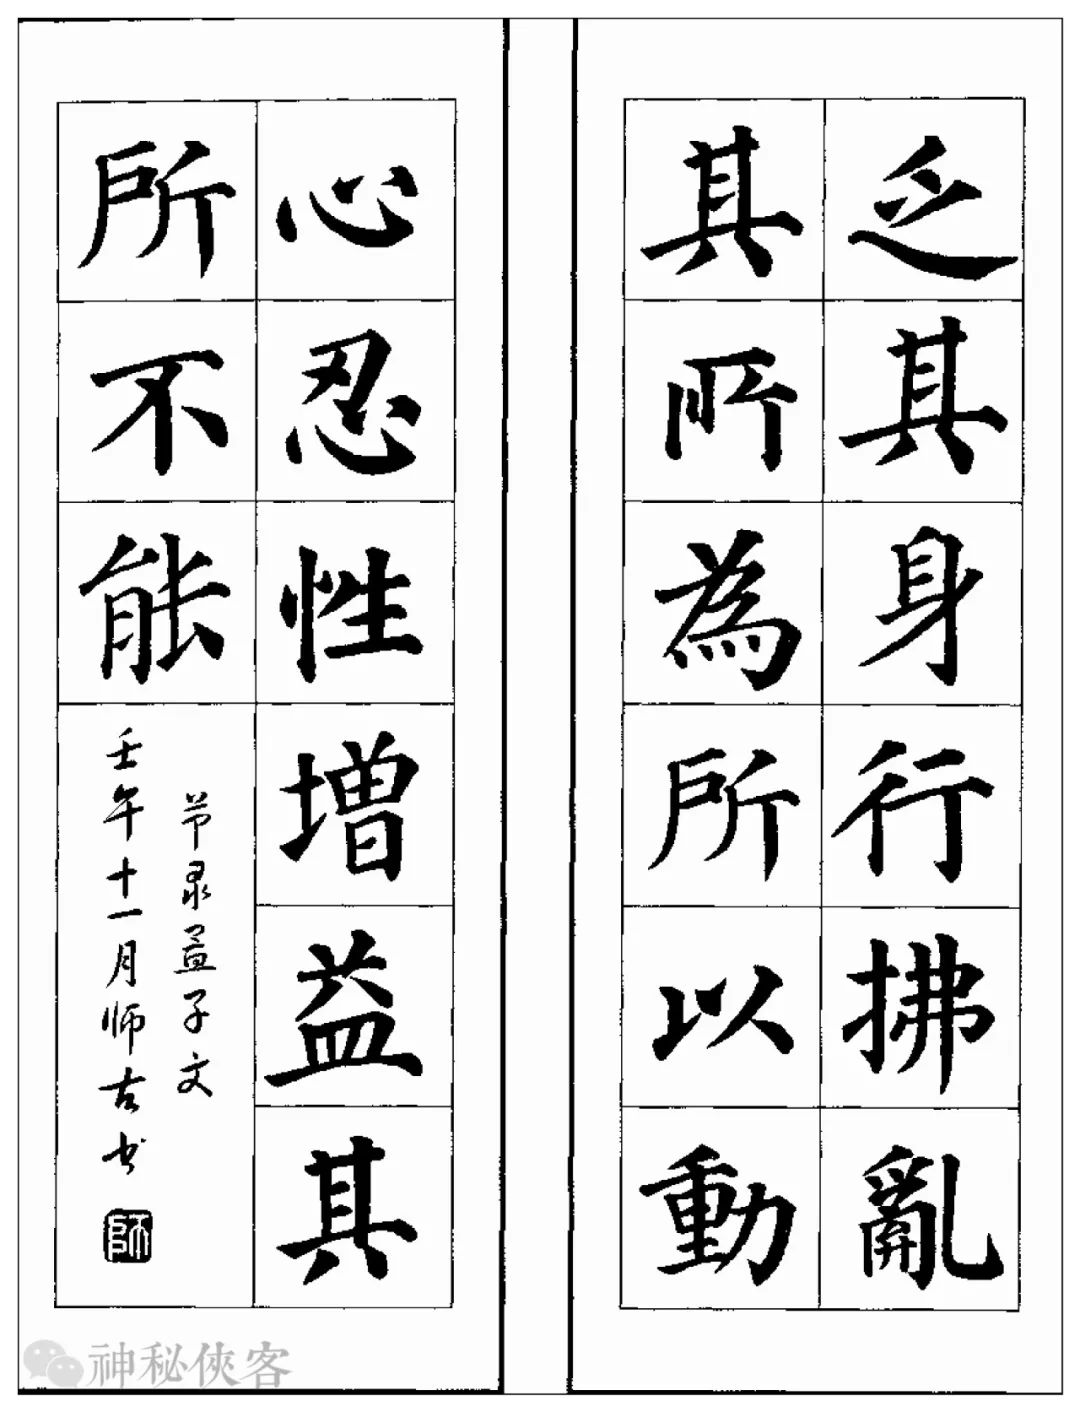 乏其身行拂亂
其所為所以動
心忍性增益其
所不能
节录孟子文
壬午十一月师古书
师
神秘俠客